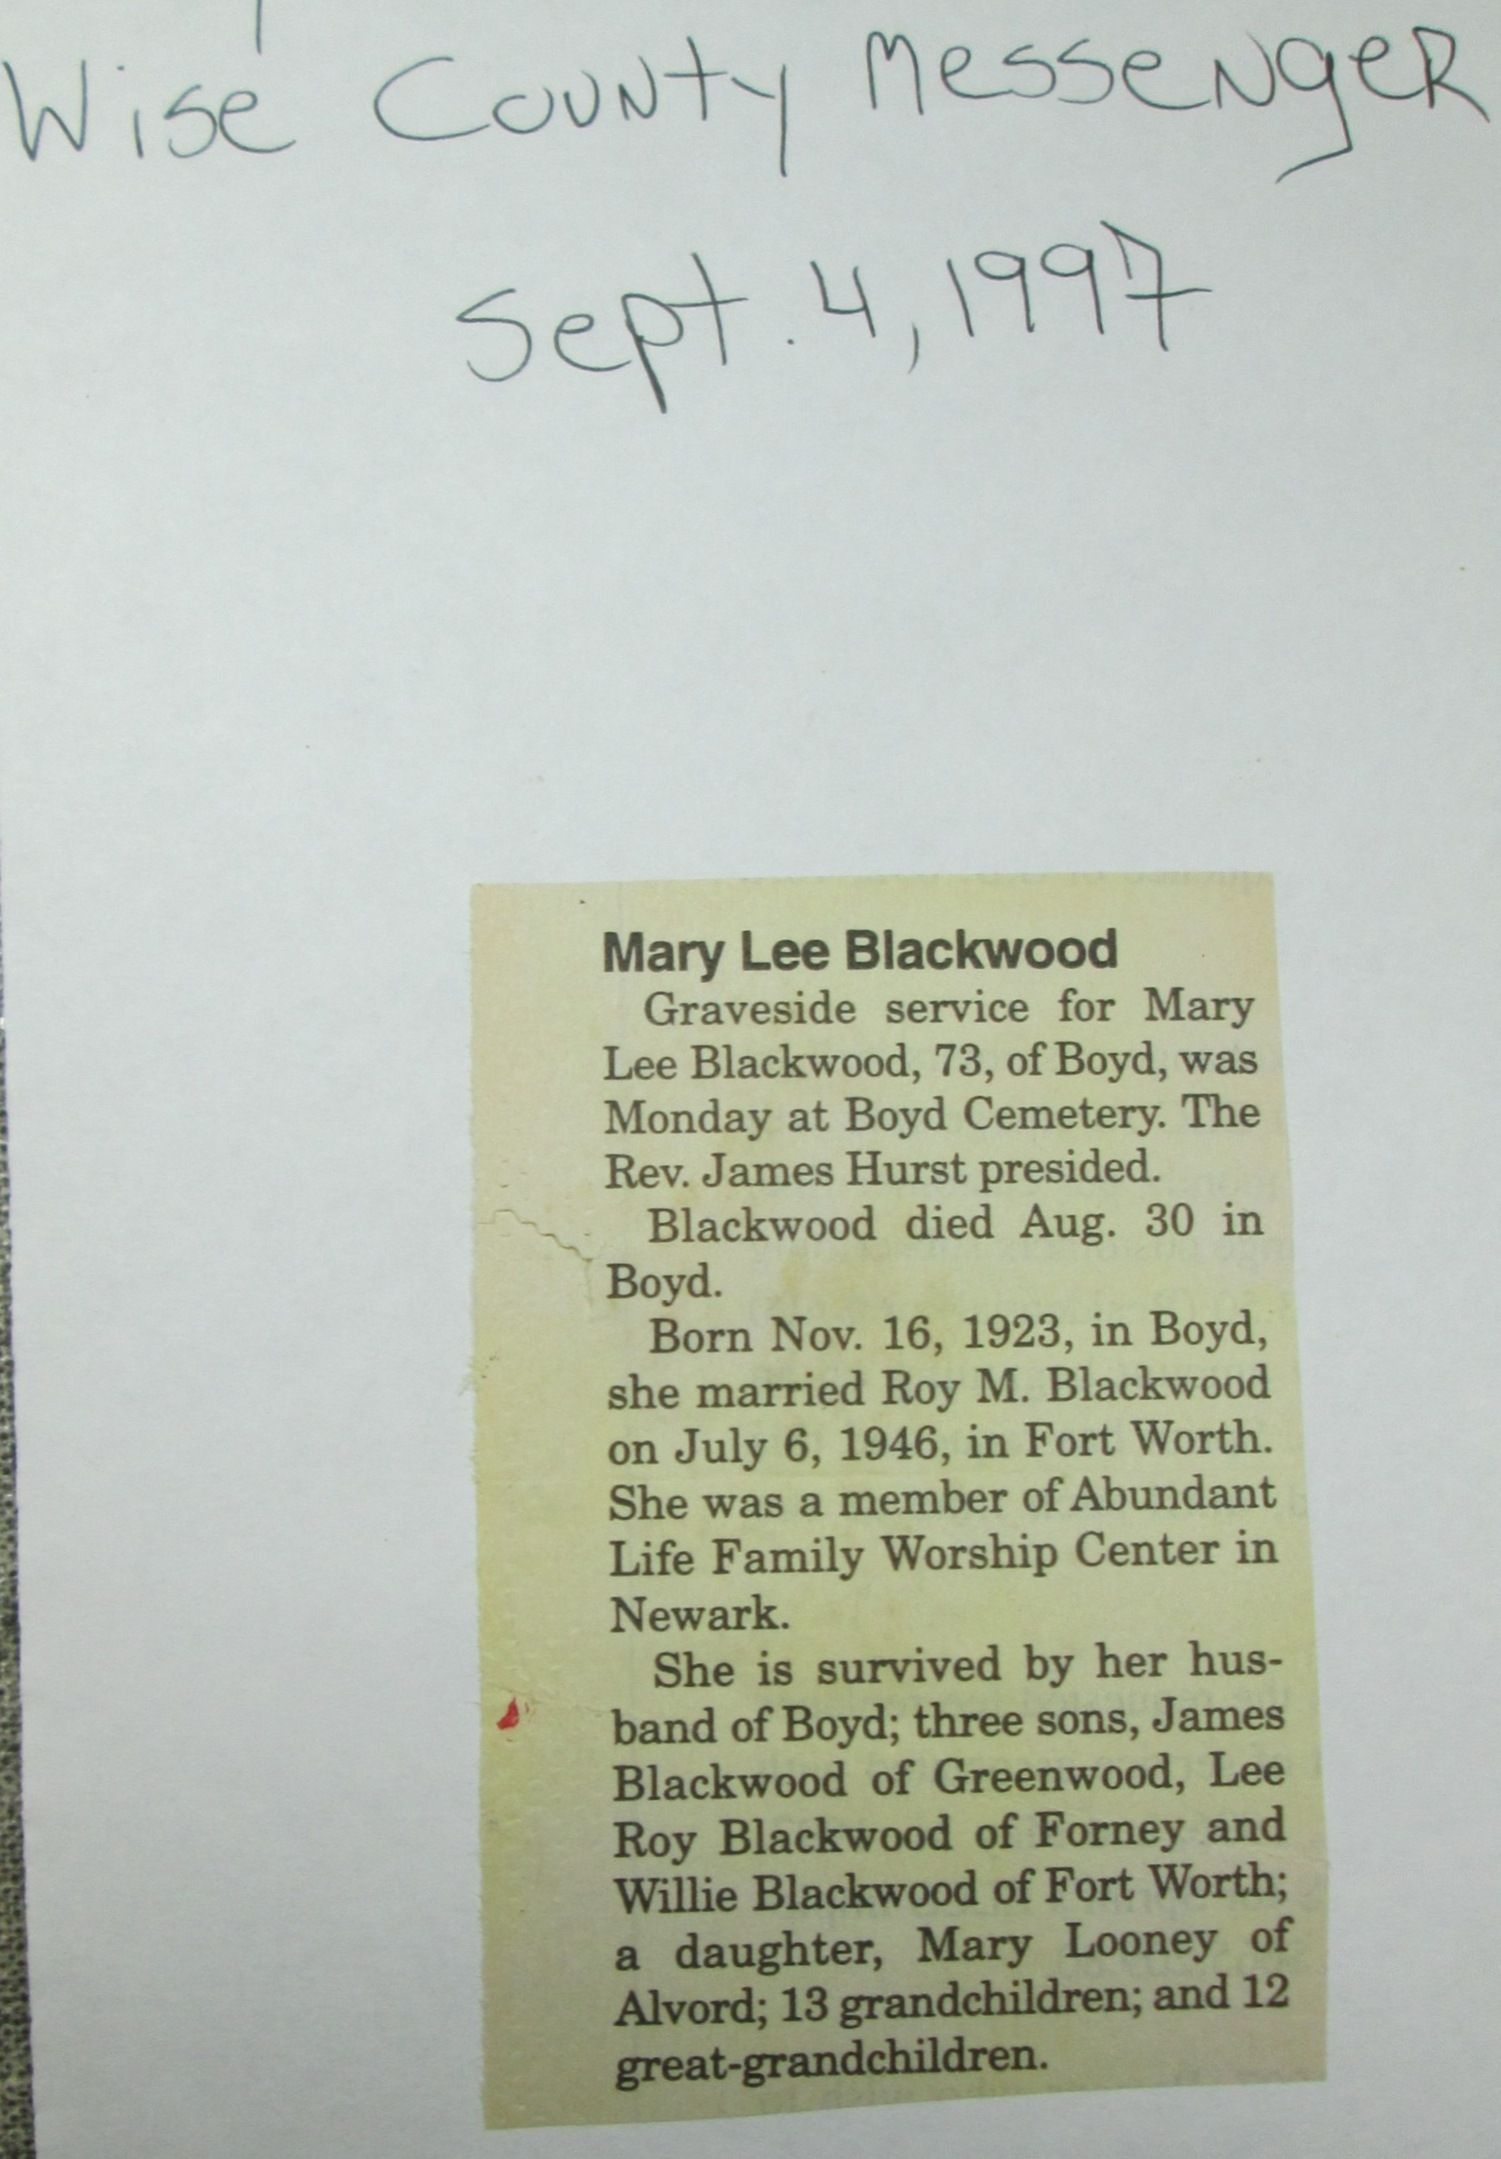 Wise County Messenger
Sept. 4, 1997
Mary Lee Blackwood
Graveside service for Mary
Lee Blackwood, 73, of Boyd, was
Monday at Boyd Cemetery. The
Rev. James Hurst presided.
Blackwood died Aug. 30 in
Boyd.
Born Nov. 16, 1923, in Boyd,
she married Roy M. Blackwood
on July 6, 1946, in Fort Worth.
She was a member of Abundant
Life Family Worship Center in
Newark.
She is survived by her hus-
band of Boyd; three sons, James
Blackwood of Greenwood, Lee
Roy Blackwood of Forney and
Willie Blackwood of Fort Worth;
a daughter, Mary Looney of
Alvord; 13 grandchildren; and 12
great-grandchildren.